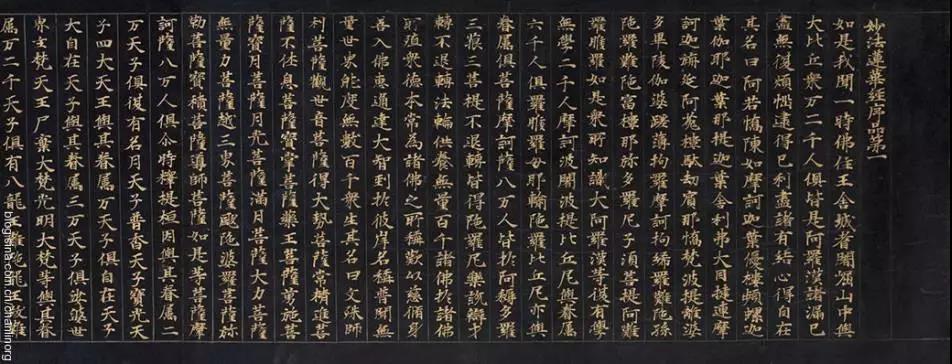 妙法蓮華經序品第一
如是我聞一時佛住王舍城耆闍崛山中與
大比丘衆万二千人俱皆是阿羅漢諸漏已
盡無復煩惱逮得己利盡諸有結心得自在
其名曰阿若憍陳如摩訶迦葉優樓頻螺迦
葉伽耶迦葉那提迦葉舍利弗大目揵連摩
訶迦旃延阿㝹樓馱劫賓那憍梵波提離婆
多畢陵伽婆蹉薄拘羅摩訶拘絺羅難陀孫
陀羅難陀富樓那弥多羅尼子須菩提阿難
羅睺羅如是衆所知識大阿羅漢等復有學
無學二千人摩訶波闍波提比丘尼與眷屬
六千人俱羅睺羅母耶輸陀羅比丘尼亦與
眷屬俱菩薩摩訶薩八万人皆於阿耨多羅
三藐三菩提不退轉皆得陀羅尼樂說辯才
轉不退轉法輪供養無量百千諸佛於諸佛
所殖衆德本常為諸佛之所稱歎以慈脩身
善入佛惠通達大智到於彼岸名稱普聞無
量世界能度無數百千衆生其名曰文殊師
利菩薩觀世音菩薩得大勢菩薩常精進菩
薩不休息菩薩寶掌菩薩藥王菩薩勇施菩
薩寶月菩薩月光菩薩滿月菩薩大力菩薩
無量力菩薩越三界菩薩颰陀婆羅菩薩弥
勒菩薩寶積菩薩導師菩薩如是等菩薩摩
訶薩八万人俱尒時釋提桓因與其眷屬二
万天子俱復有名月天子普香天子寶光天
子四大天王與其眷屬万天子俱自在天子
大自在天子與其眷屬三万天子俱娑婆世
界主梵天王尸棄大梵光明大梵等與其眷
屬万二千天子俱有八龍王難陀龍王跋難
blog.sina.com.cn/chanlin.org